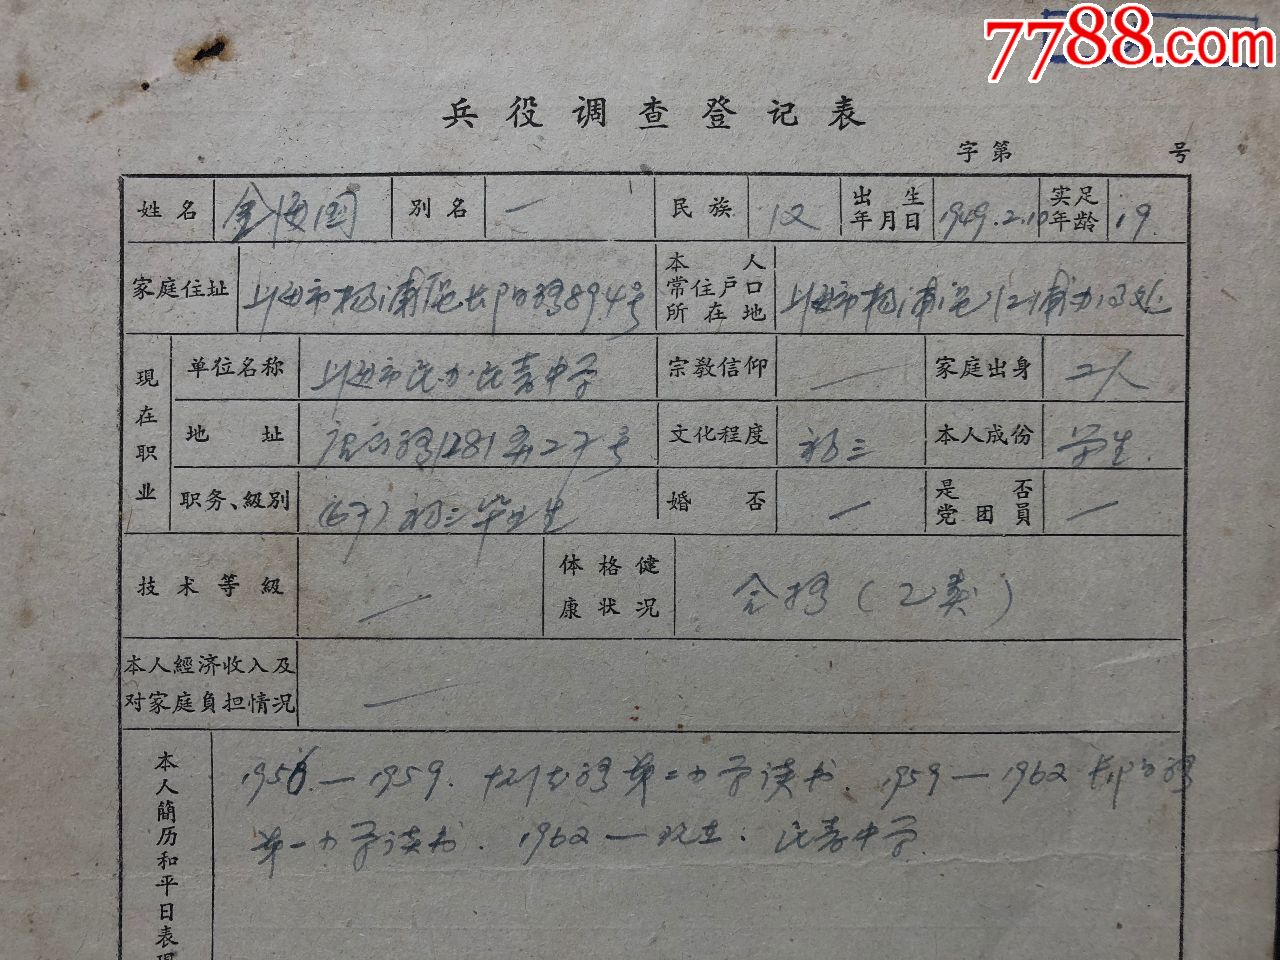 7788.com
兵役调查登记表
字第 号
姓名 金海国 别名 — 民族 汉 出生年月日 1949.2.10 实足年龄 19.
家庭住址 上海市杨浦区长阳路894号 本人常住戶口所在地 上海市杨浦区江浦办事处
現在职业 单位名称 上海市民办民青中学 宗教信仰 — 家庭出身 工人
地址 1281弄27号 文化程度 初三 本人成份 学生.
职务、級別 (67)初三毕业生 婚否 — 是否党团員 —
技术等級 — 体格健康状况 合格(乙类)
本人經济收入及对家庭負担情况 —
本人簡历和平日表現
1956—1959. 路第二小学读书. 1959—1962 长阳路
第一小学读书. 1962—现在. 民青中学.